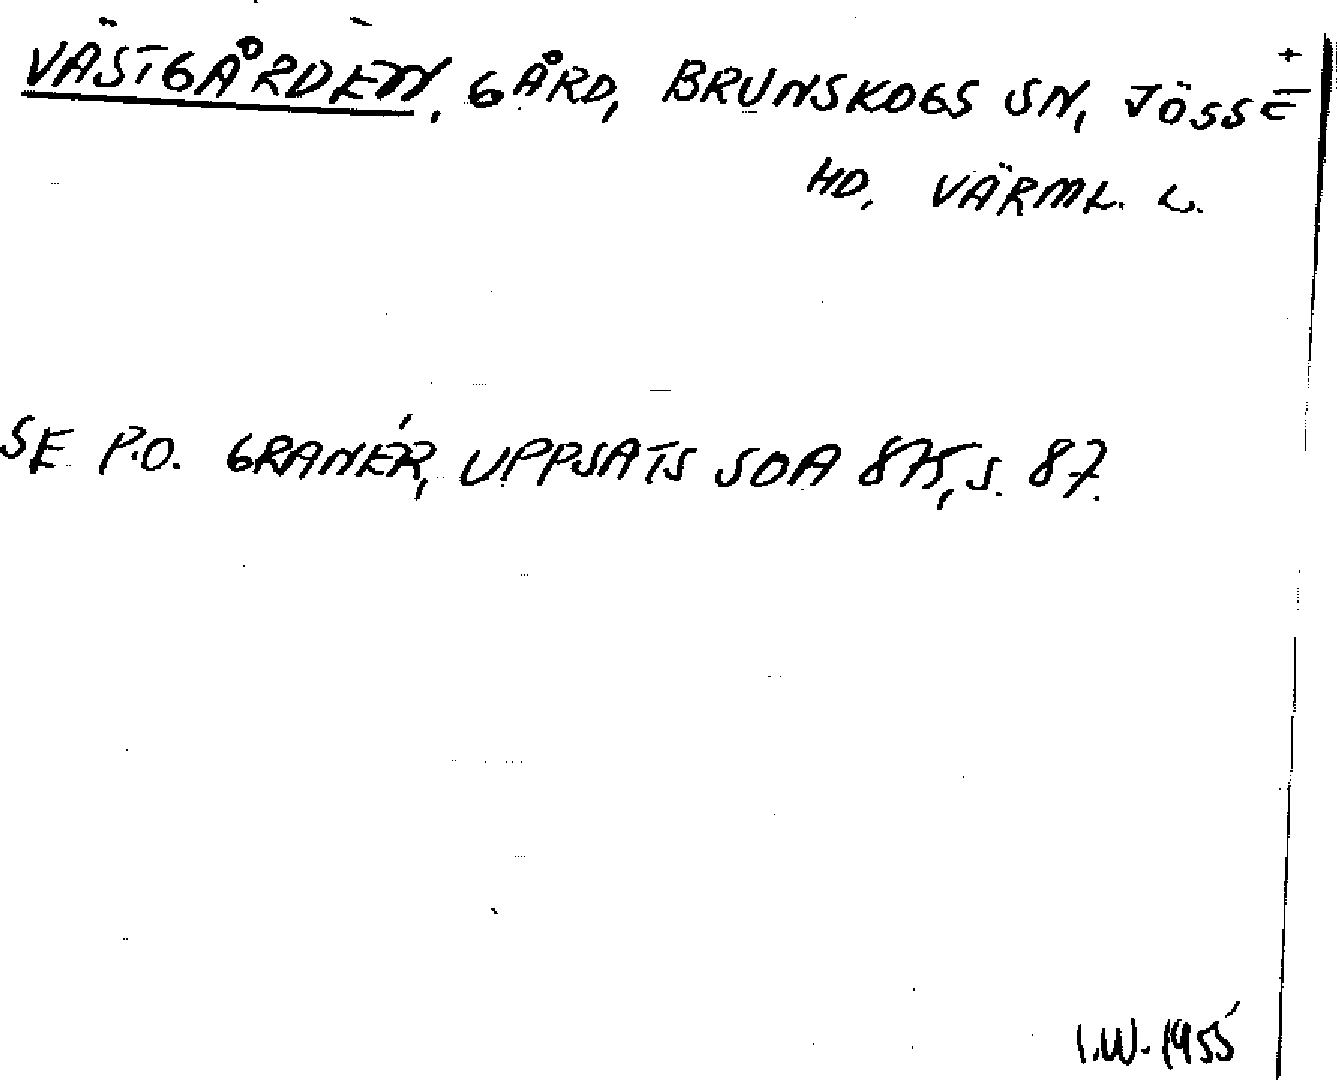 VÄSTGÅRDEN, GÅRD, BRUNSKOGS SN, JÖSSE
HD, VÄRML. L.
SE P.O. GRANÉR, UPPSATS SOA 875, S. 87.
I.W. 1955